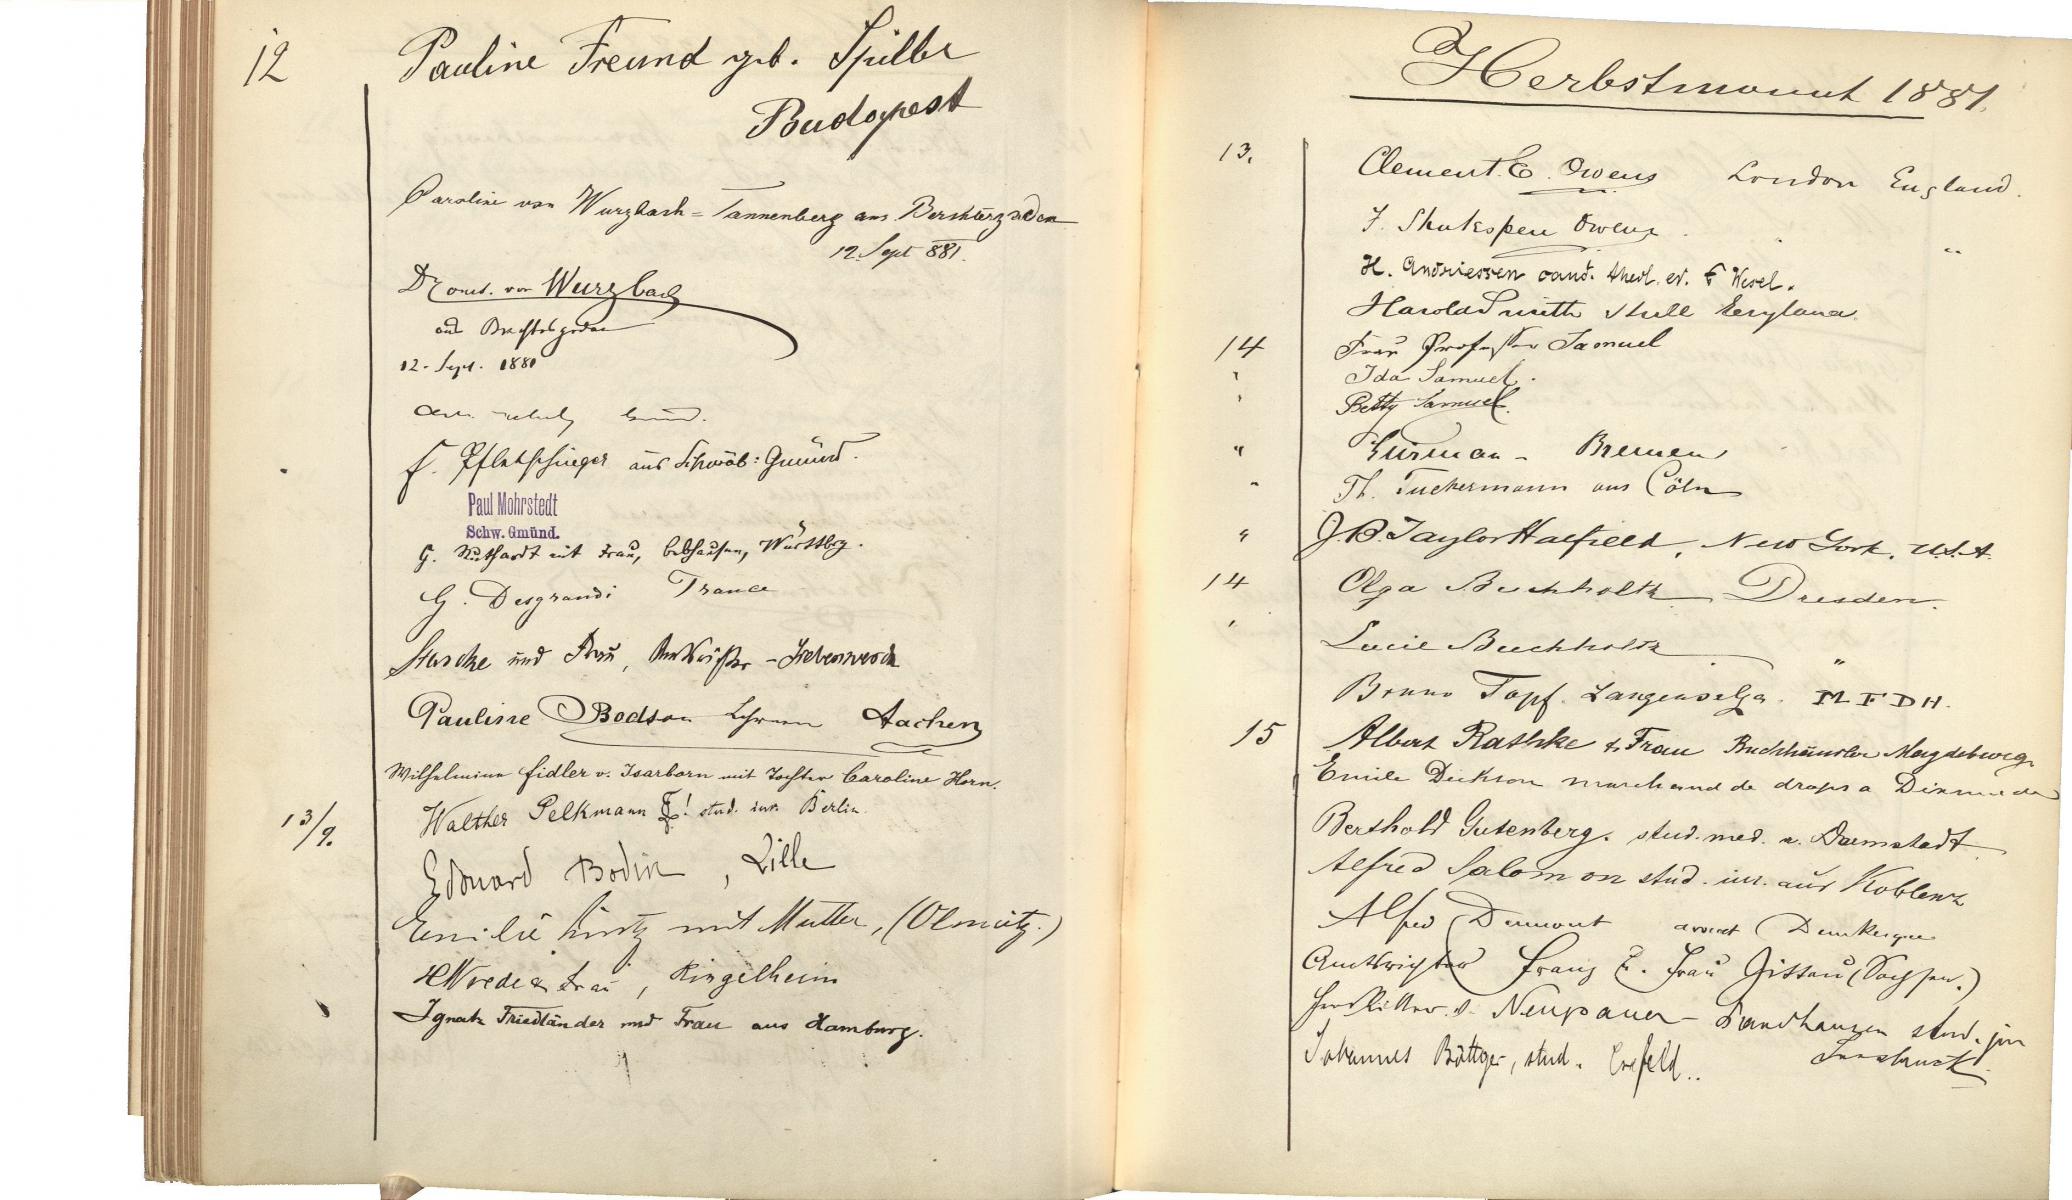 12
Pauline Freund geb. Spiller
Budapest
Caroline von Wurzbach-Tannenberg aus Berchtesgaden
12. Sept 881.
von Wurzbach
aus Berchtesgaden
12. Sept. 1881
F. aus Schwäb: Gmünd.
Paul Mohrstedt
Schw. Gmünd.
G. mit Frau, Ebhausen, Württbg.
G. Desgrandi France
und Frau, Liebenwerda
Pauline Bodson Aachen
Wilhelmine Fidler v. Isarborn mit Tochter Caroline Horn.
13/9. Walther Pelkmann stud. iur. Berlin
Edouard Bodin, Lille
Emilie mit Mutter, (Olmütz.)
H Wrede & Frau, Ringelheim
Ignatz Friedländer und Frau aus Hamburg.
Herbstmonat 1881.
13. Clement. E. Owens London England.
J. Shakspere Owens "
H. Andriessen cand. theol. ev. Wesel.
Harold Smith Hull England.
14 Frau Professor Samuel
" Ida Samuel.
" Betty Samuel.
" Bremen
" Th. Tuckermann aus Cöln
" J B Taylor Hatfield, New York. U.S.A.
14 Olga Buchholtz Dresden.
" Lucie Buchholtz "
Bruno Topf. Langensalza. M F D H.
15 Albert Rathke & Frau Buchhändler Magdeburg
Emile Dickson marchand de draps a Dixmude
Berthold Gutenberg. stud. med. a. Darmstadt.
Alfred Salomon stud. iur. aus Koblenz
Alfred Dumont avocat Dunkerque
Amtsrichter Franz & Frau Zittau (Sachsen.)
v. Neupauer - stud. jur
Innsbruck.
Johannes Böttger, stud. Crefeld..